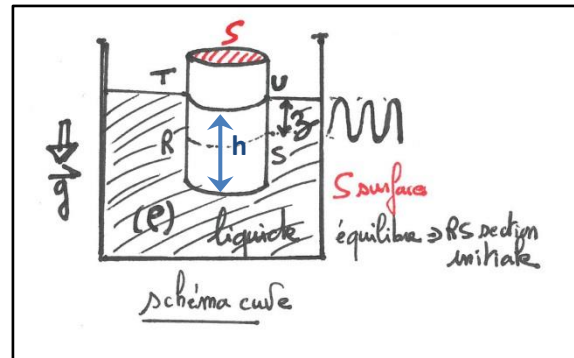 S
T U
z
R h S
g
(ρ)
liquide
S surface
équilibre ⇒ RS section
initiale
schéma cuve